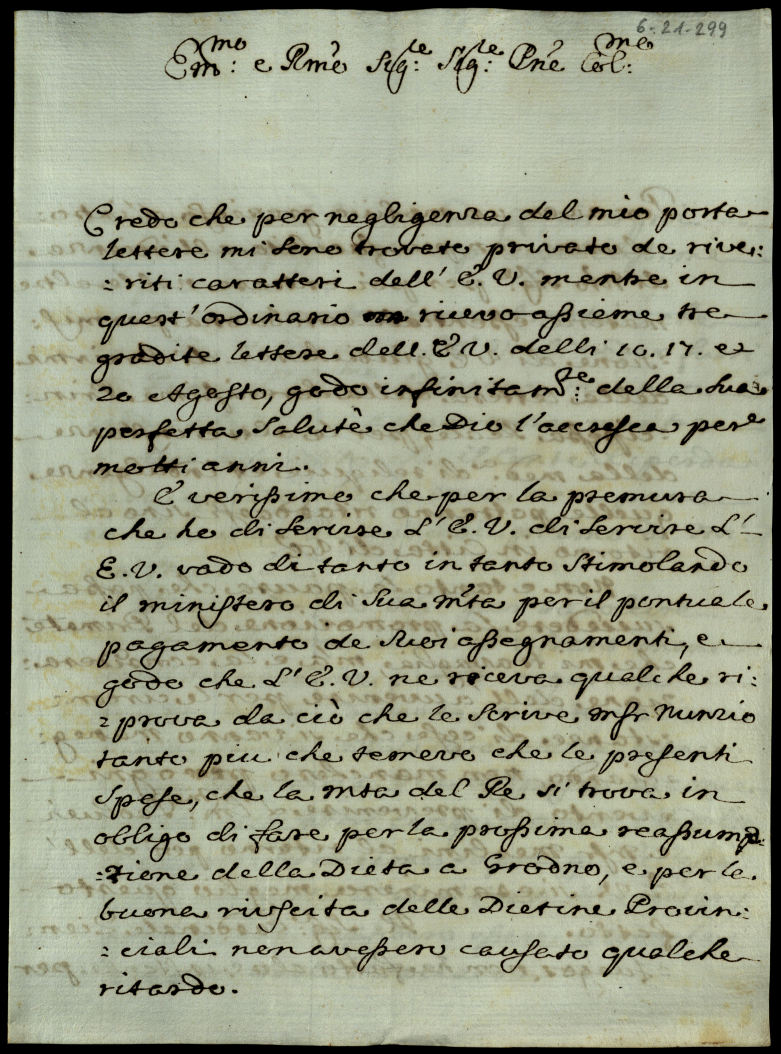 6-21-299
Em:mo e Rm̃o Sig:le Sig:le Pñe Col:mo
Credo che per negligenza del mio porta
lettere mi sono trovato privato de rive:
:riti caratteri dell' E. V. mentre in
quest' ordinario ricevo assieme tre
gradite lettere dell. E V. delli 10. 17. e
20 Agosto, godo infinitam:te della sua
perfetta salute che Dio l'accresca per
molti anni.
È verissimo che per la premura
che ho di servire L' E. V. di servire L'
E. V. vado di tanto in tanto stimolando
il ministero di Sua Mta per il pontuale
pagamento de suoi assegnamenti, e
godo che L' E. V. ne riceva qualche ri:
:prova da ciò che le scrive Msr Nunzio
tanto piu che temevo che le presenti
spese, che la Mta del Re si trova in
obligo di fare per la prossima reassump:
:zione della Dieta a Grodno, e per la
buona riuscita delle Dietine Provin:
:ciali non avessero causato qualche
ritardo.